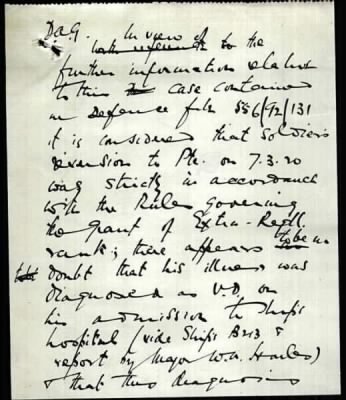 D.A.G. In view of
with reference to the
further information relative
to this case contained
in Defence file 556/92/131
it is considered that soldiers
reversion to Pte. on 7.3.20
was strictly in accordance
with the Rules governing
the grant of Extra-Regtl.
rank; there appears to be no
doubt that his illness was
diagnosed as V.D. on
his admission to ship's
hospital (vide Ships B213 &
report by Major W.A.
& that this diagnosis